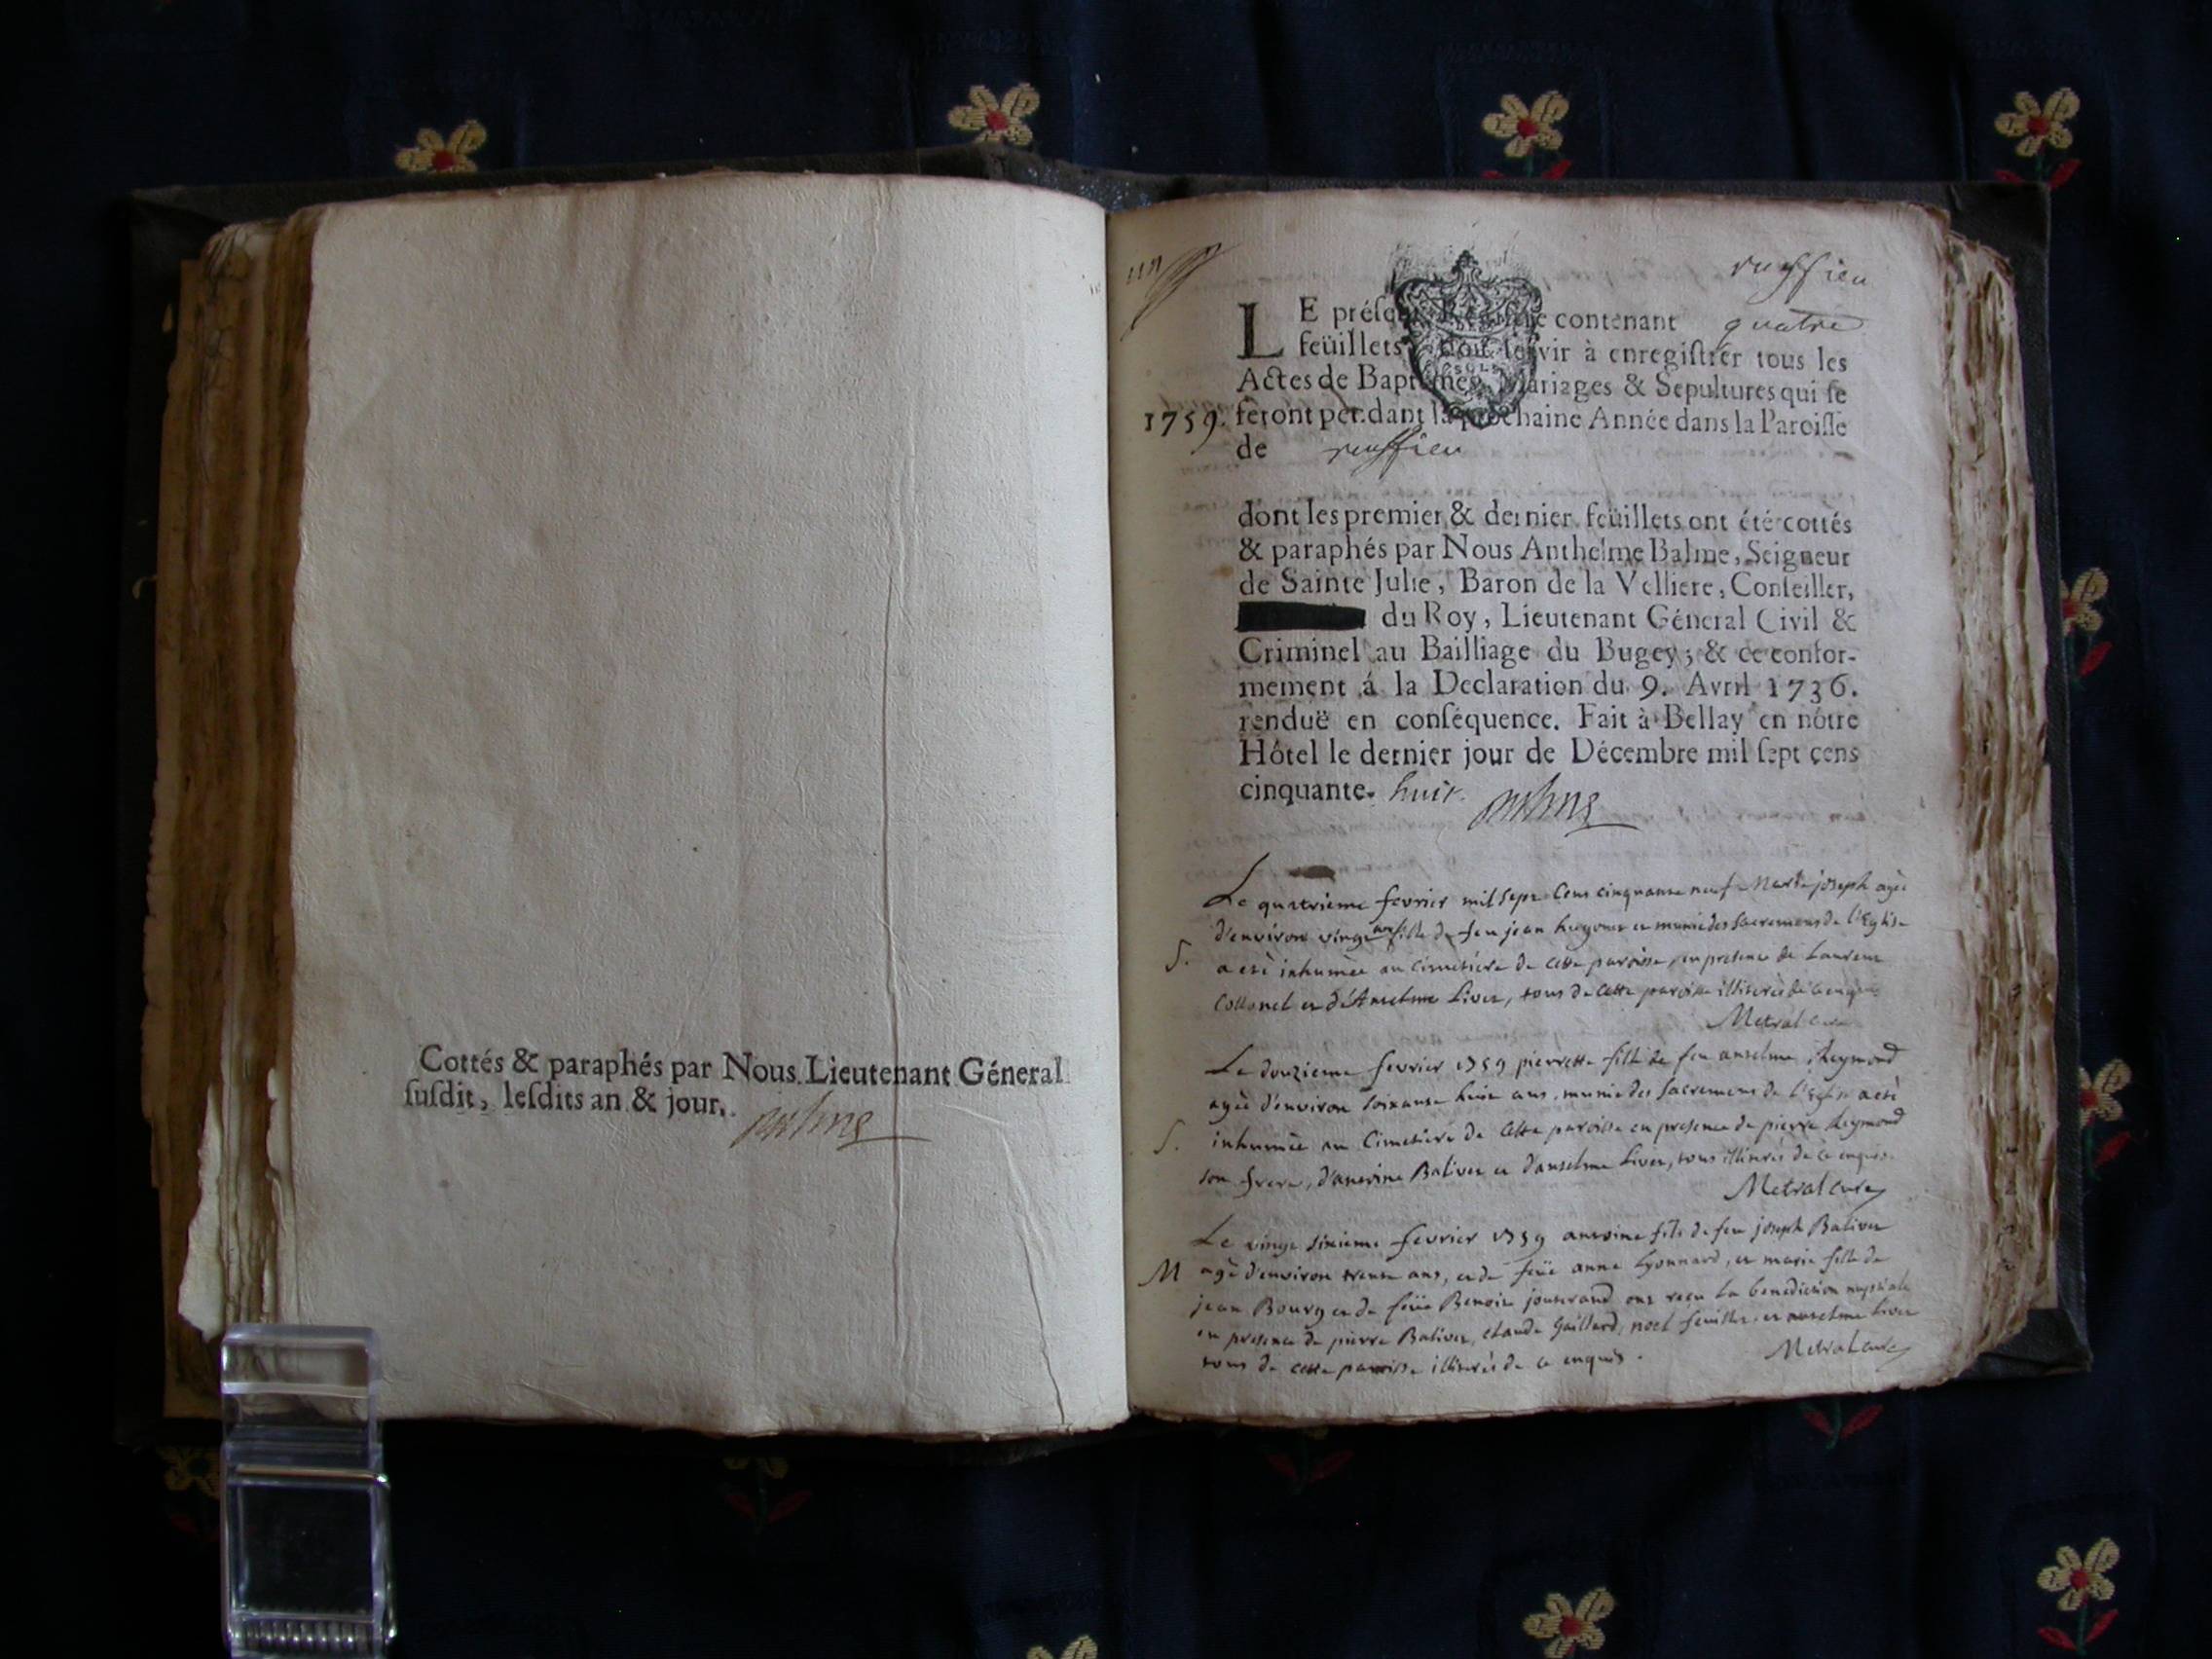 Cottés & paraphés par Nous Lieutenant Géneral
ſuſdit, leſdits an & jour.
ruffieu
LE préſent Regiſtre contenant quatre
feüillets doit ſervir à enregiſtrer tous les
Actes de Baptêmes, Mariages & Sepultures qui ſe
1759. feront pendant la prochaine Année dans la Paroiſſe
de ruffieu
dont les premier & dernier feüillets ont été cottés
& paraphés par Nous Anthelme Balme, Seigneur
de Sainte Julie, Baron de la Velliere, Conſeiller,
du Roy, Lieutenant Géneral Civil &
Criminel au Bailliage du Bugey; & ce confor-
mement á la Declaration du 9. Avril 1736.
renduë en conſéquence. Fait à Bellay en nôtre
Hôtel le dernier jour de Décembre mil ſept cens
cinquante. huit.
Le quatrieme fevrier mil sept cens cinquante neuf Marie joseph agée
d'environ vingt ans fille de feu jean et munie des sacremens de l'Eglise
S. a eté inhumée au cimetiere de cette paroisse, en presence de Laurent
et d'Anselme Livet, tous de cette paroisse illiterés de ce enquis
Metral curé
Le douzieme fevrier 1759 pierrette fille de feu anselme Reymond
agée d'environ soixante huit ans, munie des sacremens de l'Eglise a eté
S. inhumée au Cimetiere de cette paroisse en presence de pierre Reymond
son frere, d'antoine Balivet et d'anselme Livet, tous illiterés de ce enquis.
Metral curé
Le vingt sixieme fevrier 1759 antoine fils de feu joseph Balivet
M agé d'environ trente ans, et de feüe anne Lyonnard, et marie fille de
jean Bourg et de feüe Benoite jouterand ont reçu la benediction nuptiale
en presence de pierre Balivet, claude Gaillard, noel feuillet et anselme Livet
tous de cette paroisse illiterés de ce enquis.
Metral curé